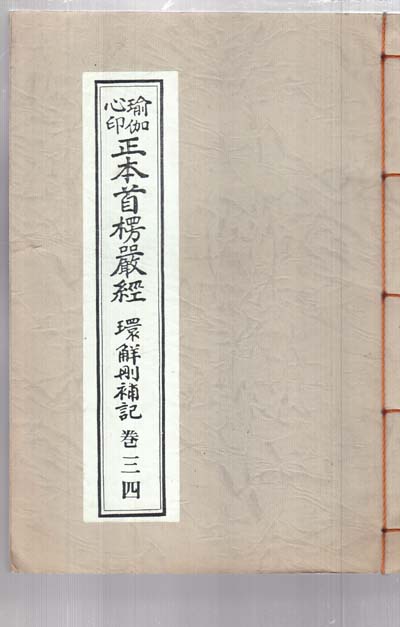 瑜伽
心印
正本首楞嚴經 環觧刪補記 卷三四